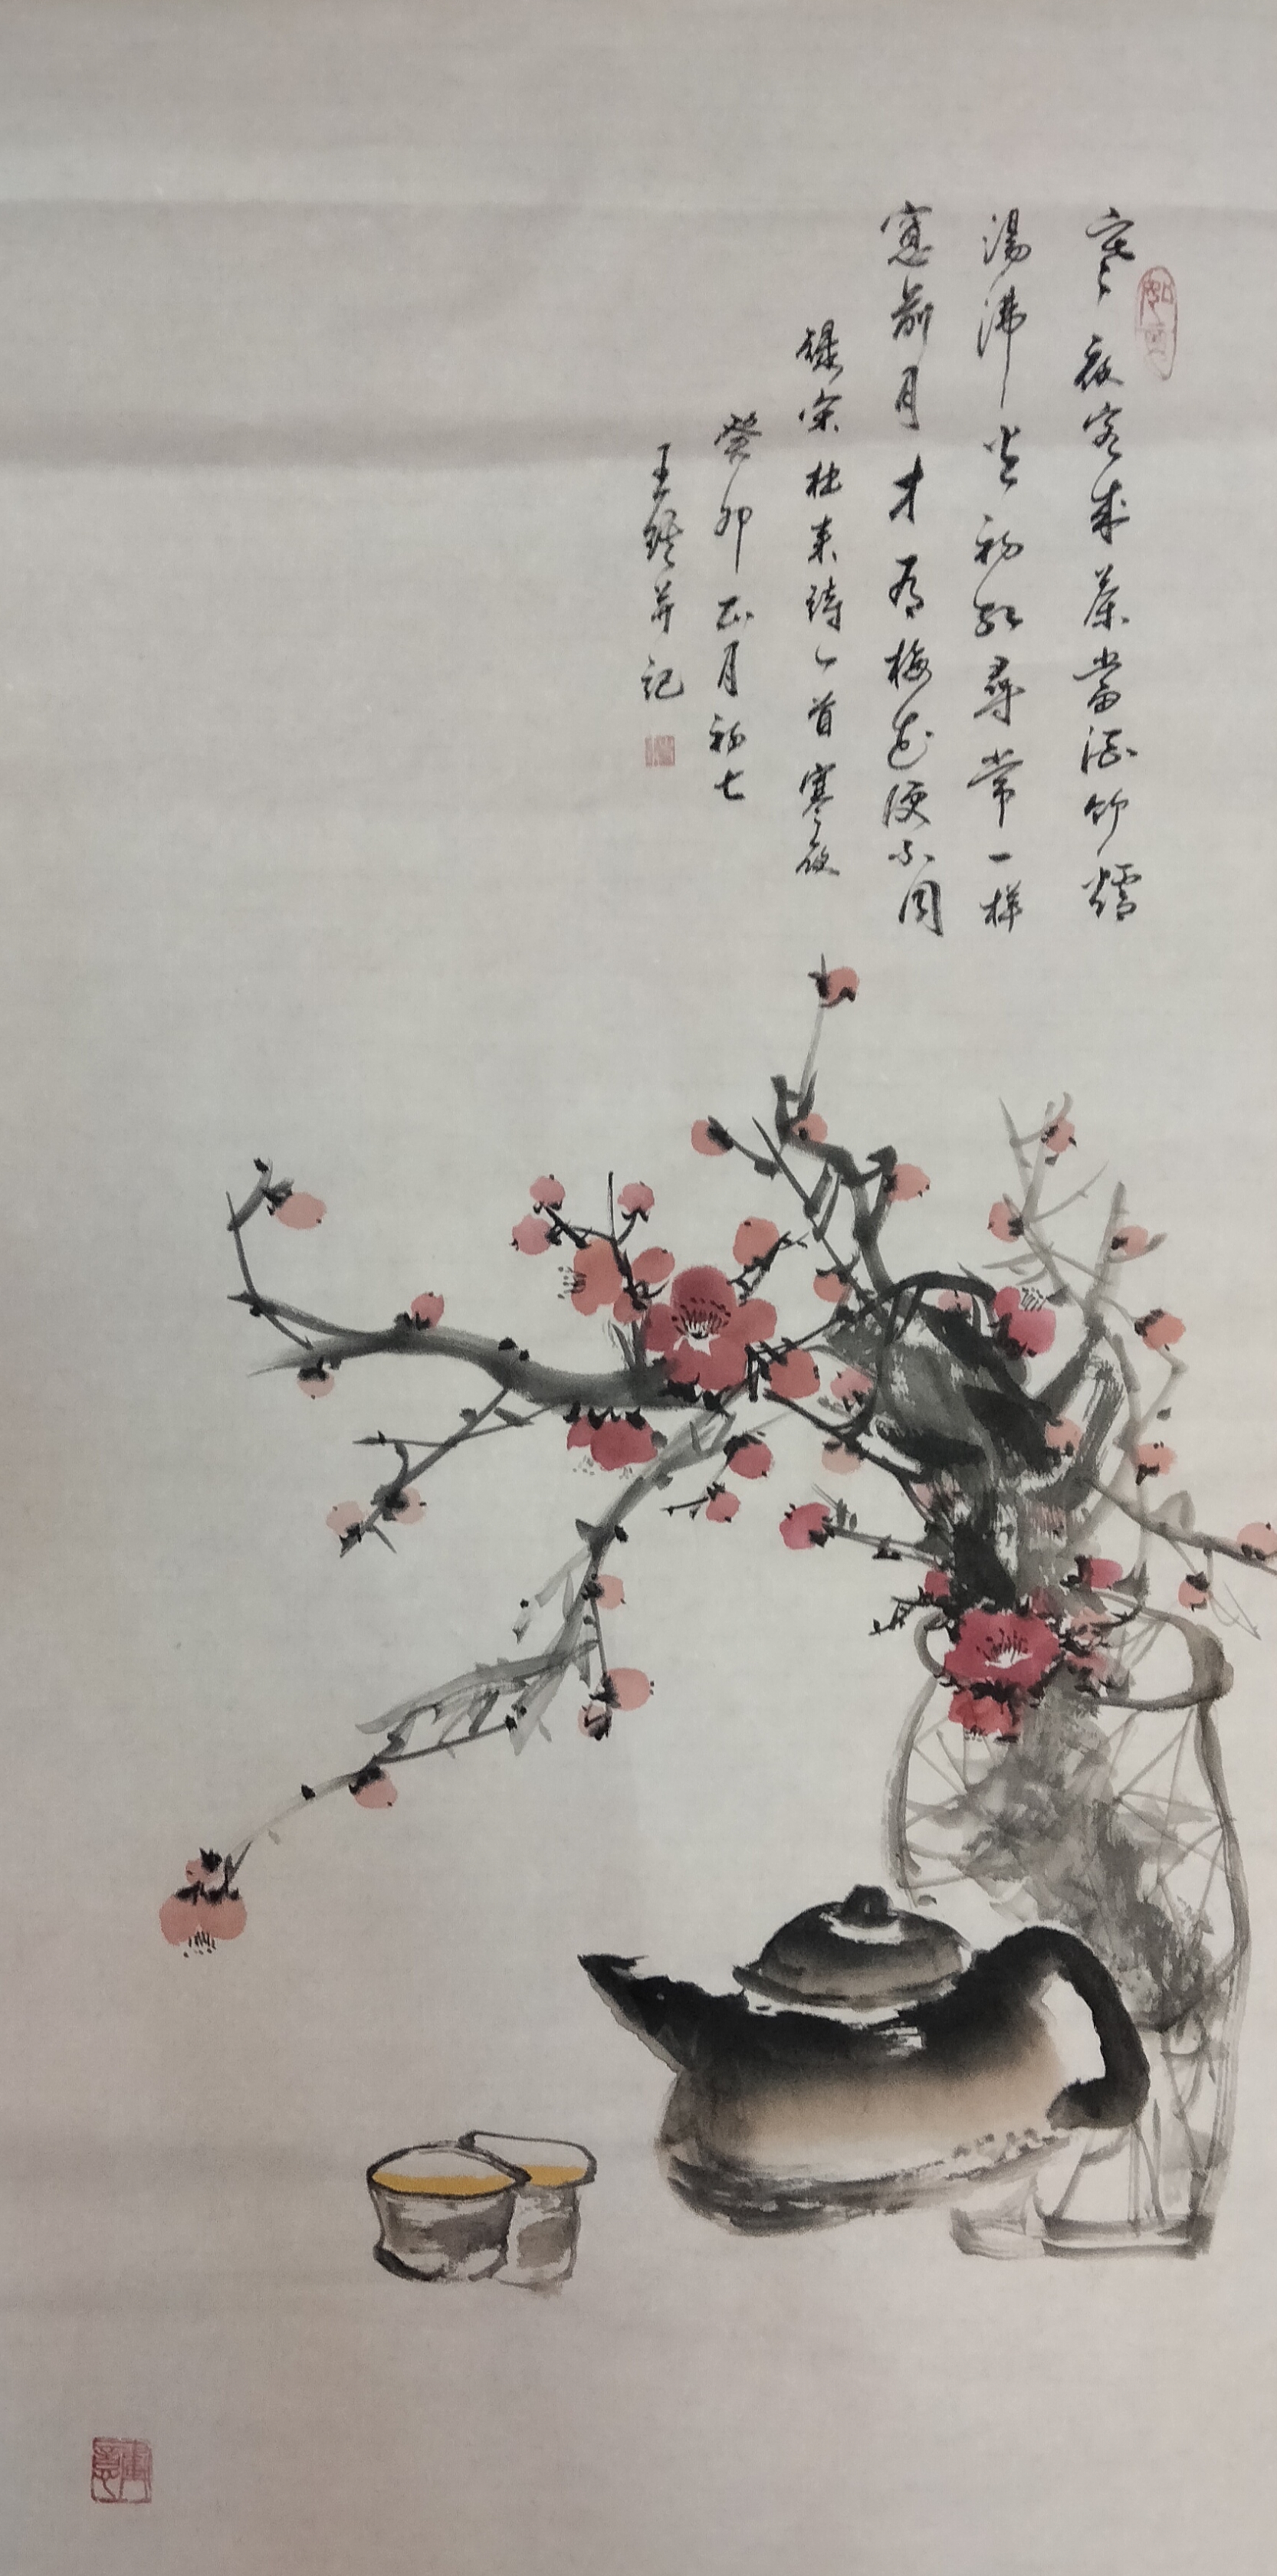 寒夜客来茶当酒竹炉
汤沸火初红寻常一样
窗前月才有梅花便不同
录宋杜耒诗一首寒夜
癸卯正月初七
王 并记
如意